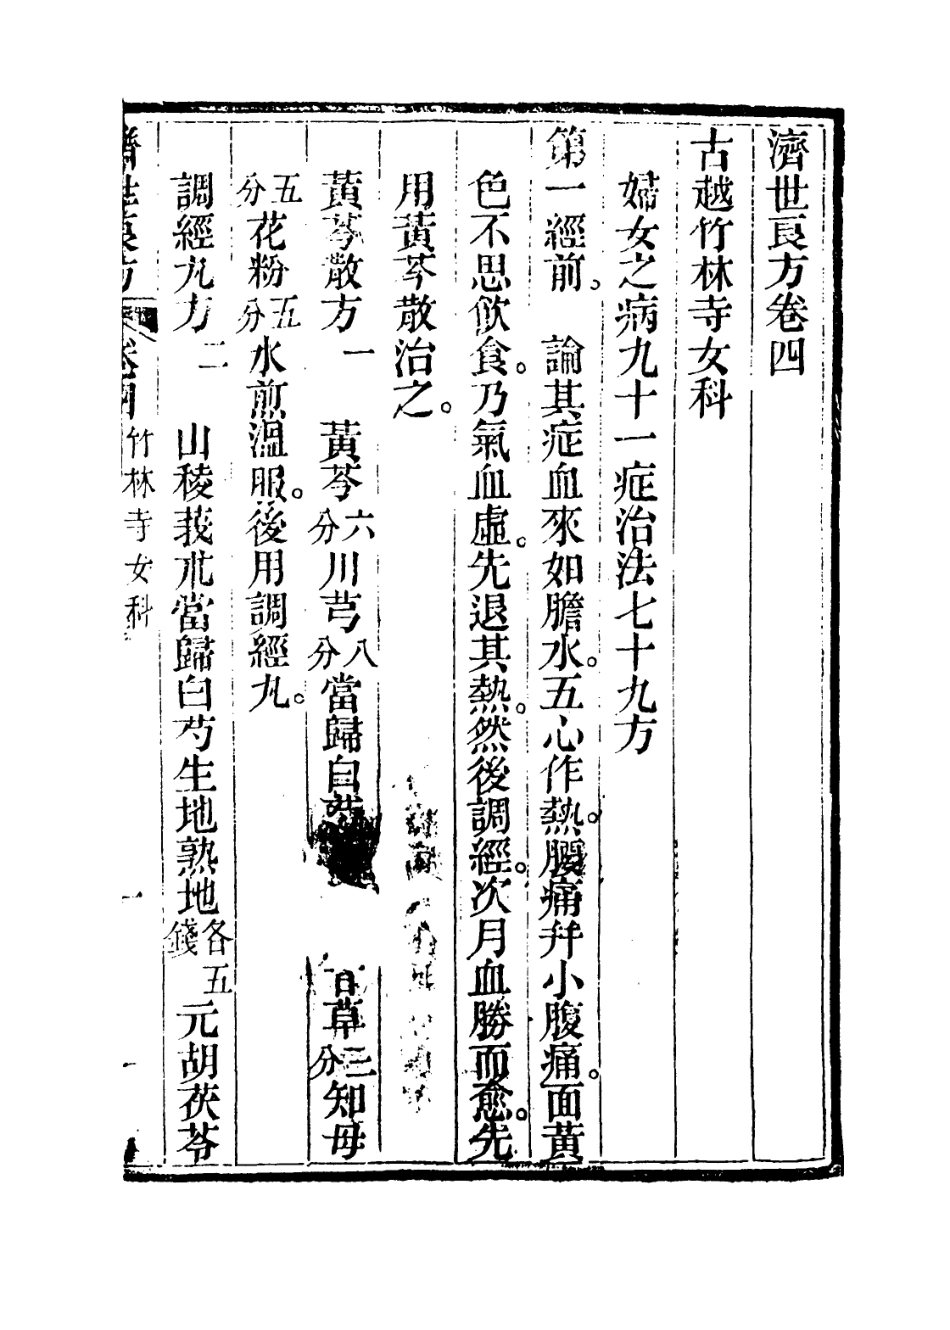 濟世良方卷四
古越竹林寺女科
婦女之病九十一症治法七十九方
第一經前。論其症血來如膽水。五心作熱。腰痛幷小腹痛。面黃
色不思飲食。乃氣血虛。先退其熱。然後調經。次月血勝而愈。先
用黃芩散治之。
黃芩散方一 黃芩六分川芎八分當歸白 甘草三分知母
五分花粉五分水煎溫服。後用調經丸。
調經丸方二 山稜莪朮當歸白芍生地熟地各五錢元胡茯苓
濟世良方 卷四 竹林寺女科 一